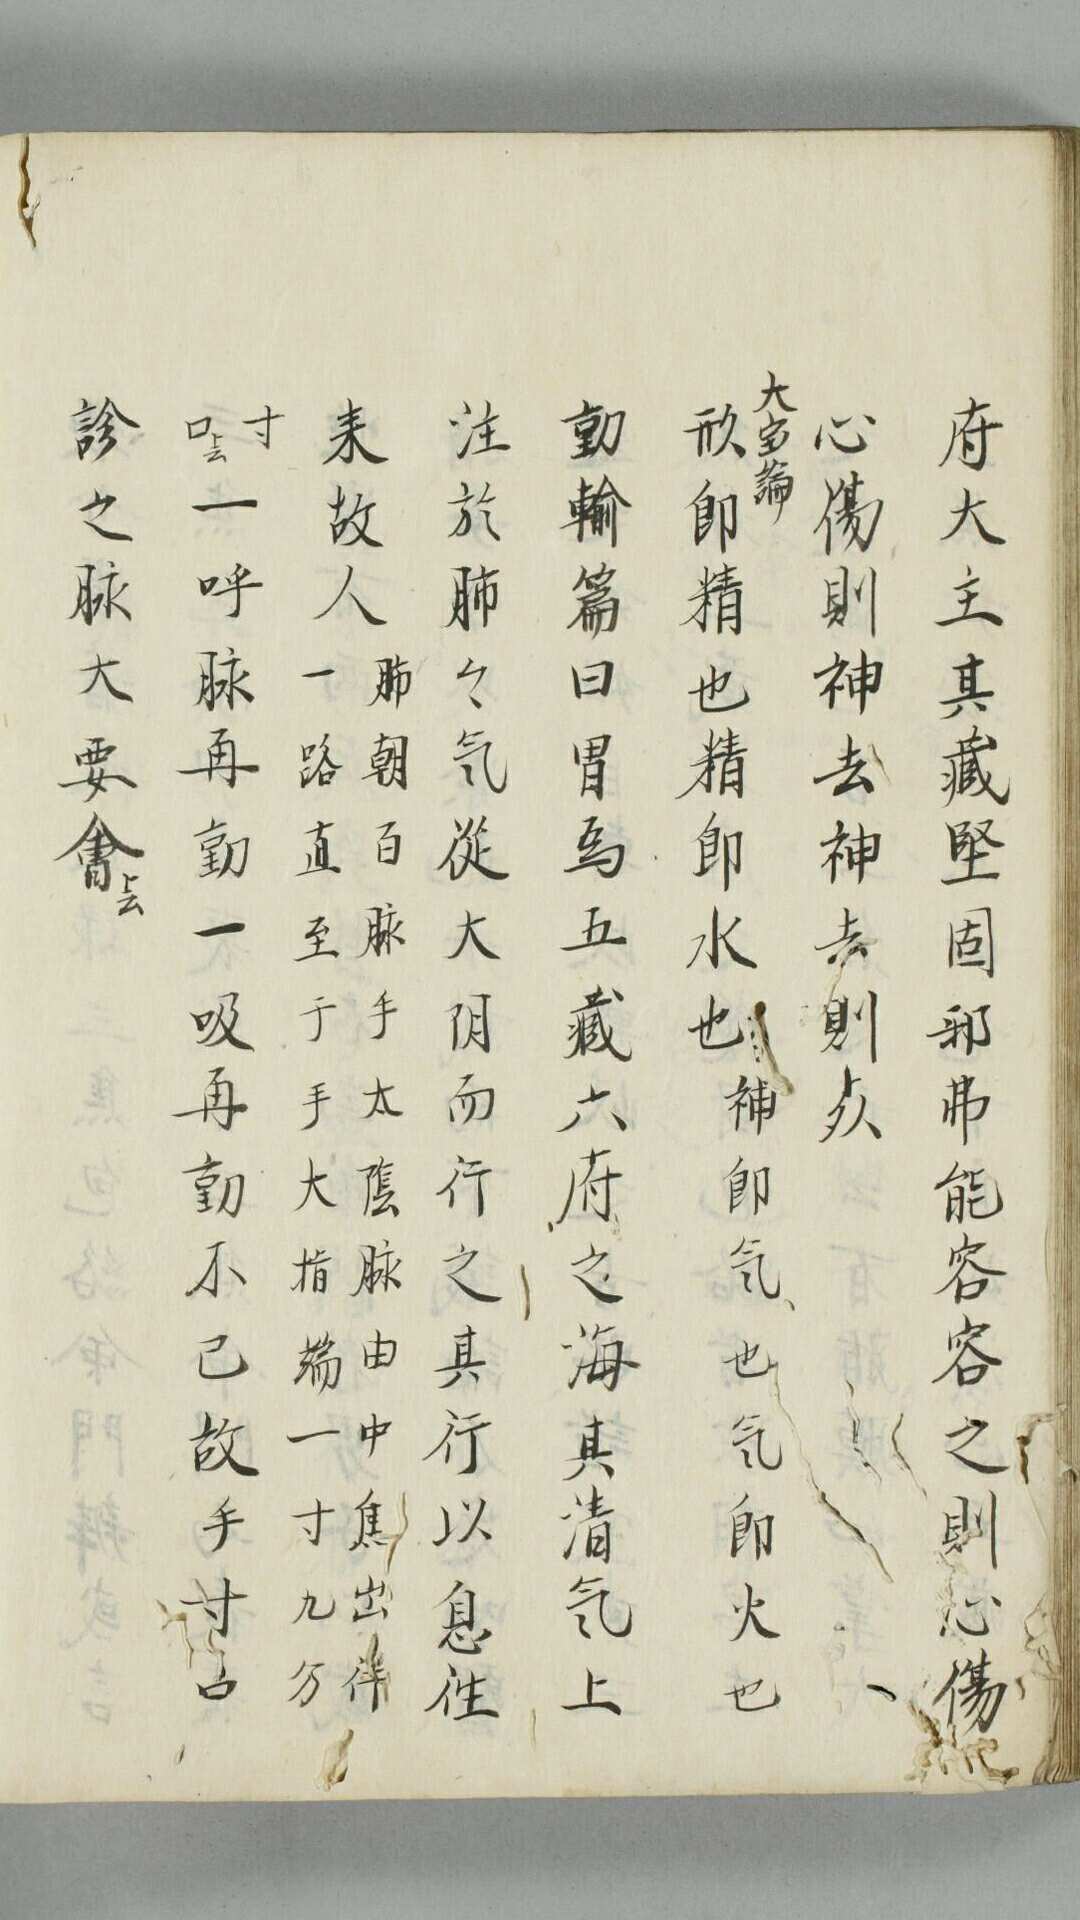 府大主其藏堅固邪弗能容容之則心傷
心傷則神去神去則死
大宝論
形即精也精即水也神即気也気即火也
動輸篇曰胃為五藏六府之海其清気上
注於肺々気從大阴而行之其行以息往
来故人
肺朝百脉手太陰脉由中焦出伴
一路直至于手大指端一寸九分
寸
口云
一呼脉再動一吸再動不已故手寸口
診之脉大要會云